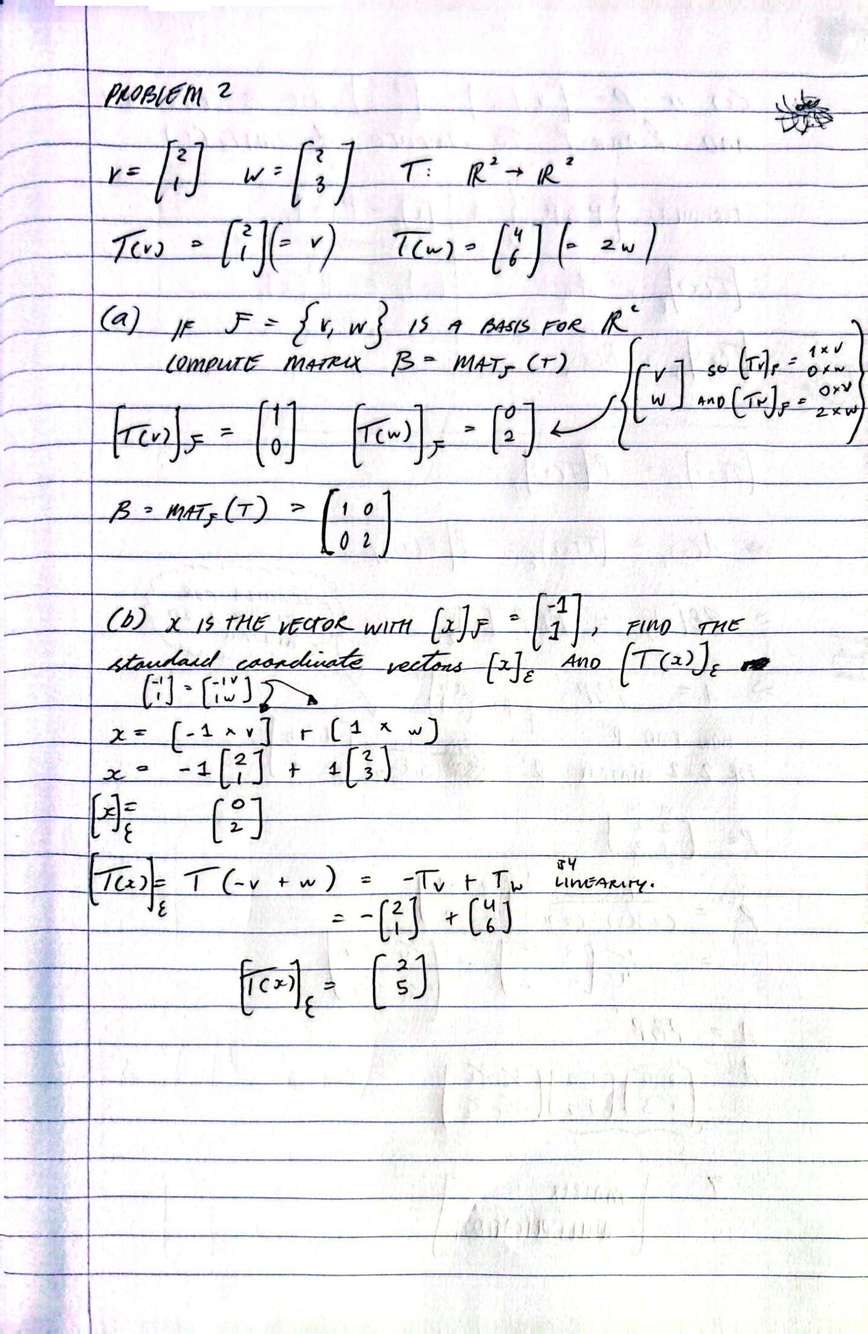 PROBLEM 2
v = [2 1] w = [2 3] T: ℝ² → ℝ²
T(v) = [2 1] (= v) T(w) = [4 6] (= 2w)
(a) IF F = {v, w} IS A BASIS FOR ℝ²
COMPUTE MATRIX B = MAT_F (T)
{[v w] SO [Tv]_F = 1×v 0×w
AND [Tw]_F = 0×v 2×w}
[T(v)]_F = [1 0] [T(w)]_F = [0 2] ←
B = MAT_F (T) = [1 0 0 2]
(b) x IS THE VECTOR WITH [x]_F = [-1 1], FIND THE
standard coordinate vectors [x]_ε AND [T(x)]_ε
[-1 1] = [-1v 1w]
x = [-1 × v] + [1 × w]
x = -1 [2 1] + 1 [2 3]
[x]_ε = [0 2]
[T(x)]_ε = T(-v + w) = -Tv + Tw BY LINEARITY.
= -[2 1] + [4 6]
[T(x)]_ε = [2 5]